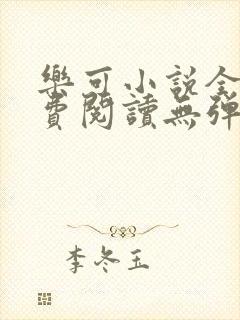 樂可小說全
費閱讀無彈
李冬玉